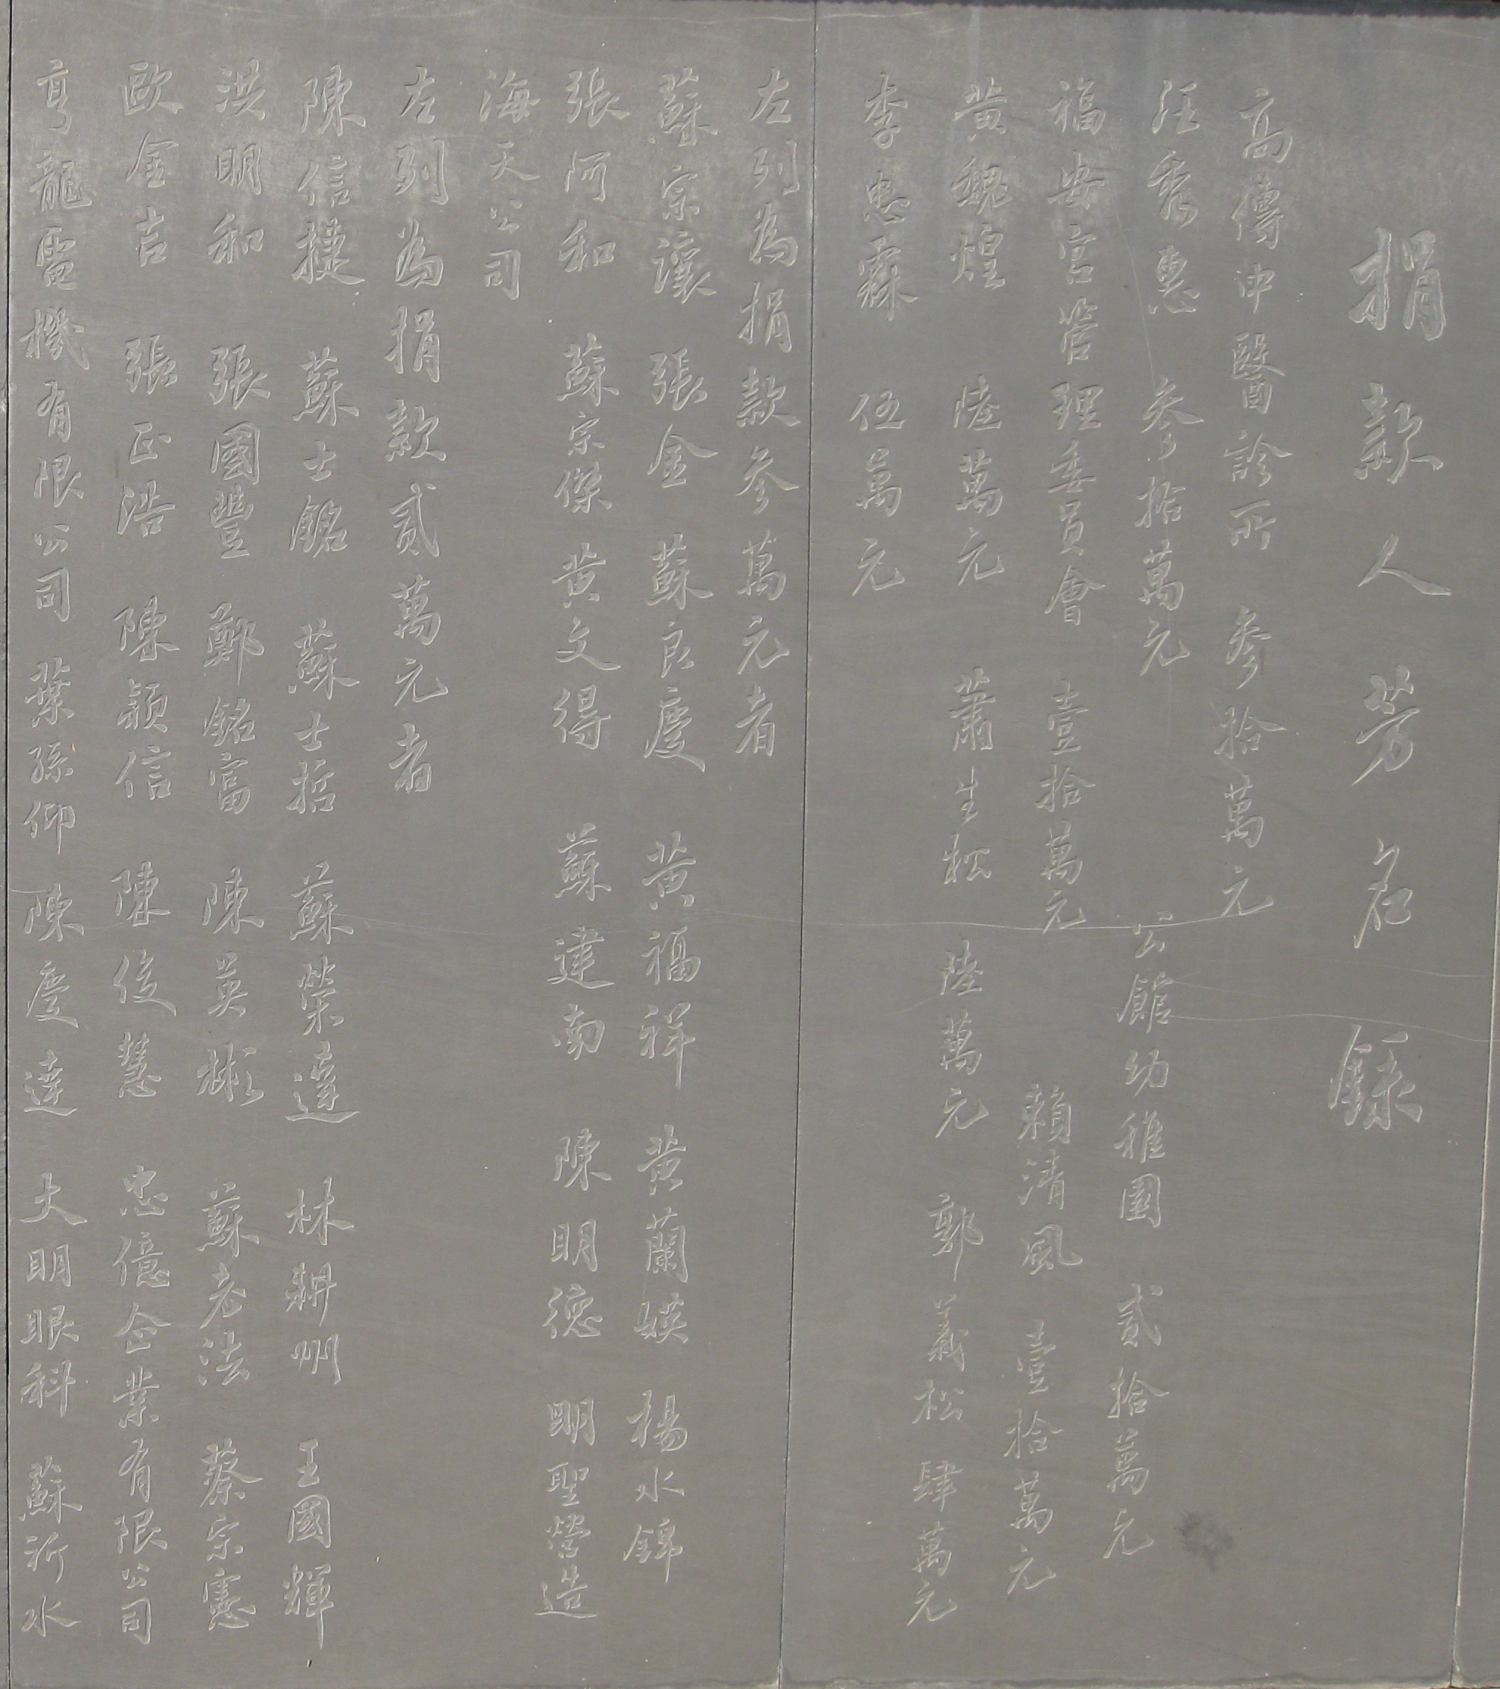 捐款人芳名錄
高傳中醫診所 參拾萬元
汪秀惠 參拾萬元 公館幼稚園 貳拾萬元
福安宮管理委員會 壹拾萬元 賴清風 壹拾萬元
黃魏煌 陸萬元 蕭生松 陸萬元 郭義松 肆萬元
李忠霖 伍萬元
左列為捐款參萬元者
蘇宗讓 張金 蘇良慶 黃福祥 黃蘭媖 楊水錦
張河和 蘇宗傑 黃文得 蘇建南 陳明德 明聖營造
海天公司
左列為捐款貳萬元者
陳信捷 蘇士銘 蘇士哲 蘇榮達 林耕州 王國輝
洪明和 張國豐 鄭銘富 陳英彬 蘇老法 蔡宗憲
歐金吉 張正浩 陳穎信 陳俊慧 忠億企業有限公司
亨龍電機有限公司 葉孫仰 陳慶達 大明眼科 蘇沂水